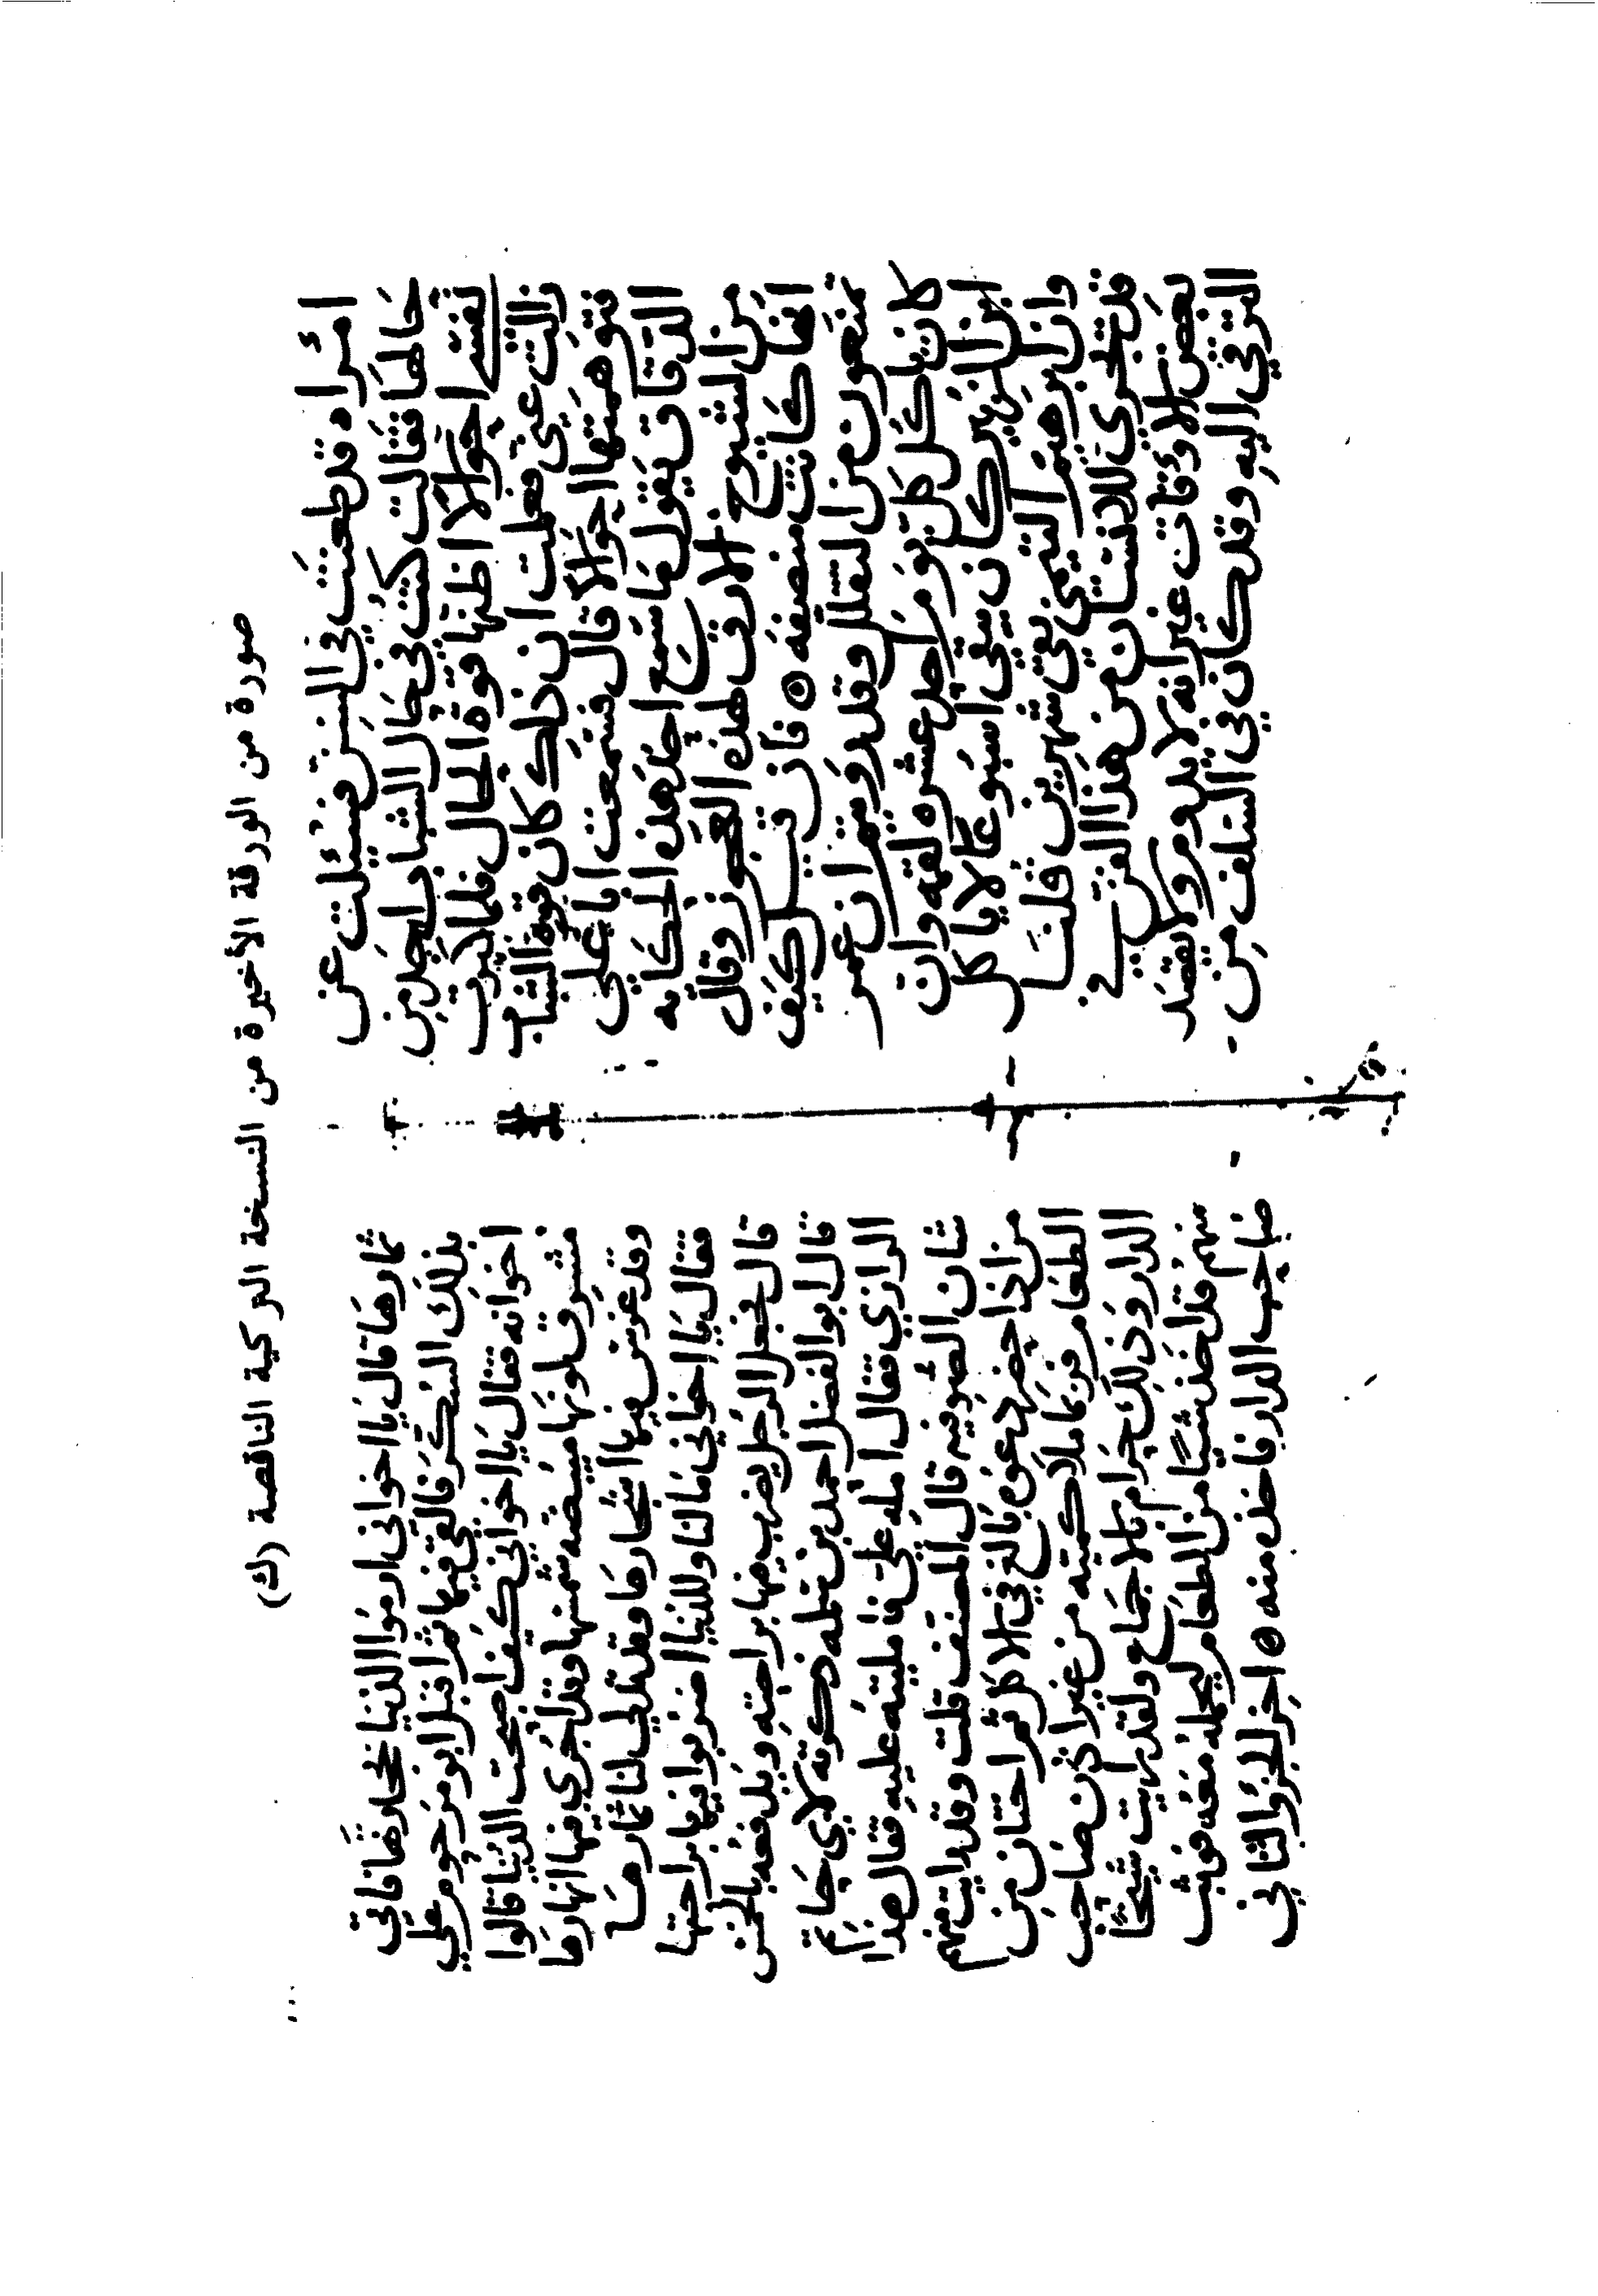 صورة من الورقة الأخيرة من النسخة التركية الناقصة (ك)
امراه قد طعنت في السن فسئلت عن
حالها فقالت كنت في حال الشباب اجد من
نفسي احوالا اظنها قوة الحال فلما كبرت
زالت عني فعلمت ان ذلك كان قوة الشباب
فتوهمتها احوالا قال سمعت ابا علي
الدقاق يقول ما سمع احد هذه الحكايه
من الشيوخ الا رق لهذه العجوز وقال
انها كانت منصفه ٥ فان قيل كيف
تمنعون من التقلل وقد رويتم ان عمر
كان ياكل كل يوم احدى عشره لقمه وان
ابن الزبير كان يبقى اسبوعا لا ياكل
وان ابرهيم التيمي بقي شهرين قلنا
قد يجري للانسان من هذا الفن في
بعض الاوقات غير انه لا يدوم ولا يقصد
الترقي اليه وقد كان في السلف من
ثمارها قال يا اخواني ارموا الدنيا بحذافيرها فاتي
بذلك السكر فالقي فيها ثم اقبل ابو مرحوم على
اخوانه فقال يا اخواني كيف اصبحت الدنيا قالوا
مشرق لونها مبيضه متنها وقد اجري فيها انهارها
وقد غرس فيها اشجارها وقد تدلى لنا ثمارها
فقال يا اخواني ما لنا وللدنيا اضربوا فيها براحتها
قال فجعل الرجل يضرب فيها براحته ويدفعه بالخمس
قال ابو الفضل احمد بن سلمه ذكرته لابي حاتم
الرازي فقال امله علي فامليته عليه فقال هذا
شان الصوفيه قال المصنف قلت وقد رايت منهم
من اذا حضر دعوه بالغ في الاكل ثم اختار من
الطعام فربما ملا كميه من غير اذن صاحب
الدار وذلك حرام بالاجماع ولقد رايت شيخا
منهم قد اخذ شيا من الطعام ليحمله معه فوثب
صاحب الدار فاخذه منه ٥ اخر الجزؤ الثاني